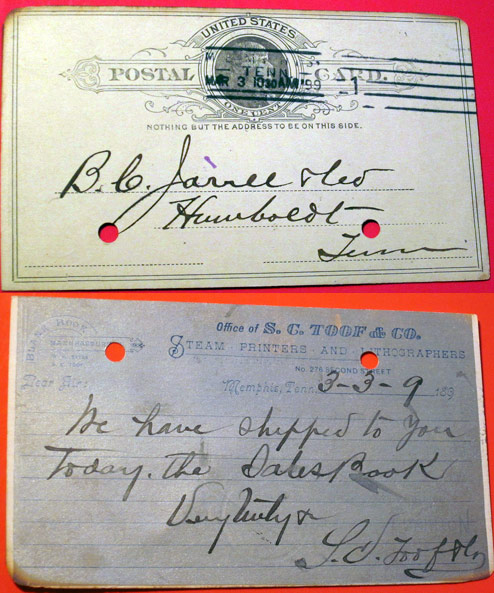 UNITED STATES
POSTAL CARD.
TENN
MAR 3 1030AM '99
1
ONE CENT
NOTHING BUT THE ADDRESS TO BE ON THIS SIDE.
B. C. Jarrell & Co
Humboldt
Tenn
BLANK BOOK
MANUFACTURERS
Office of S. C. TOOF & CO.
STEAM PRINTERS AND LITHOGRAPHERS
No. 276 SECOND STREET
Memphis, Tenn. 3-3-9 189
Dear Sir:
We have shipped to you
Today, the Sales Book
Very truly &
S. C. Toof & Co